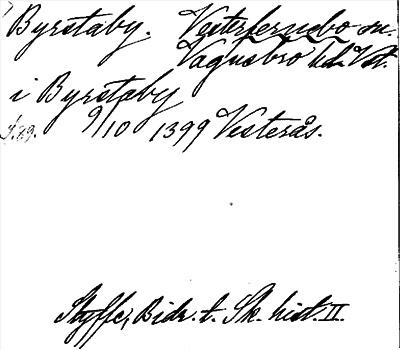 Byrstaby. Vesterfernebo sn.
Vagnsbro hd. Vstm.
i Byrstaby
9/10 1399 Vesterås.
Styffe, Bidr. t. Sk. hist. II.